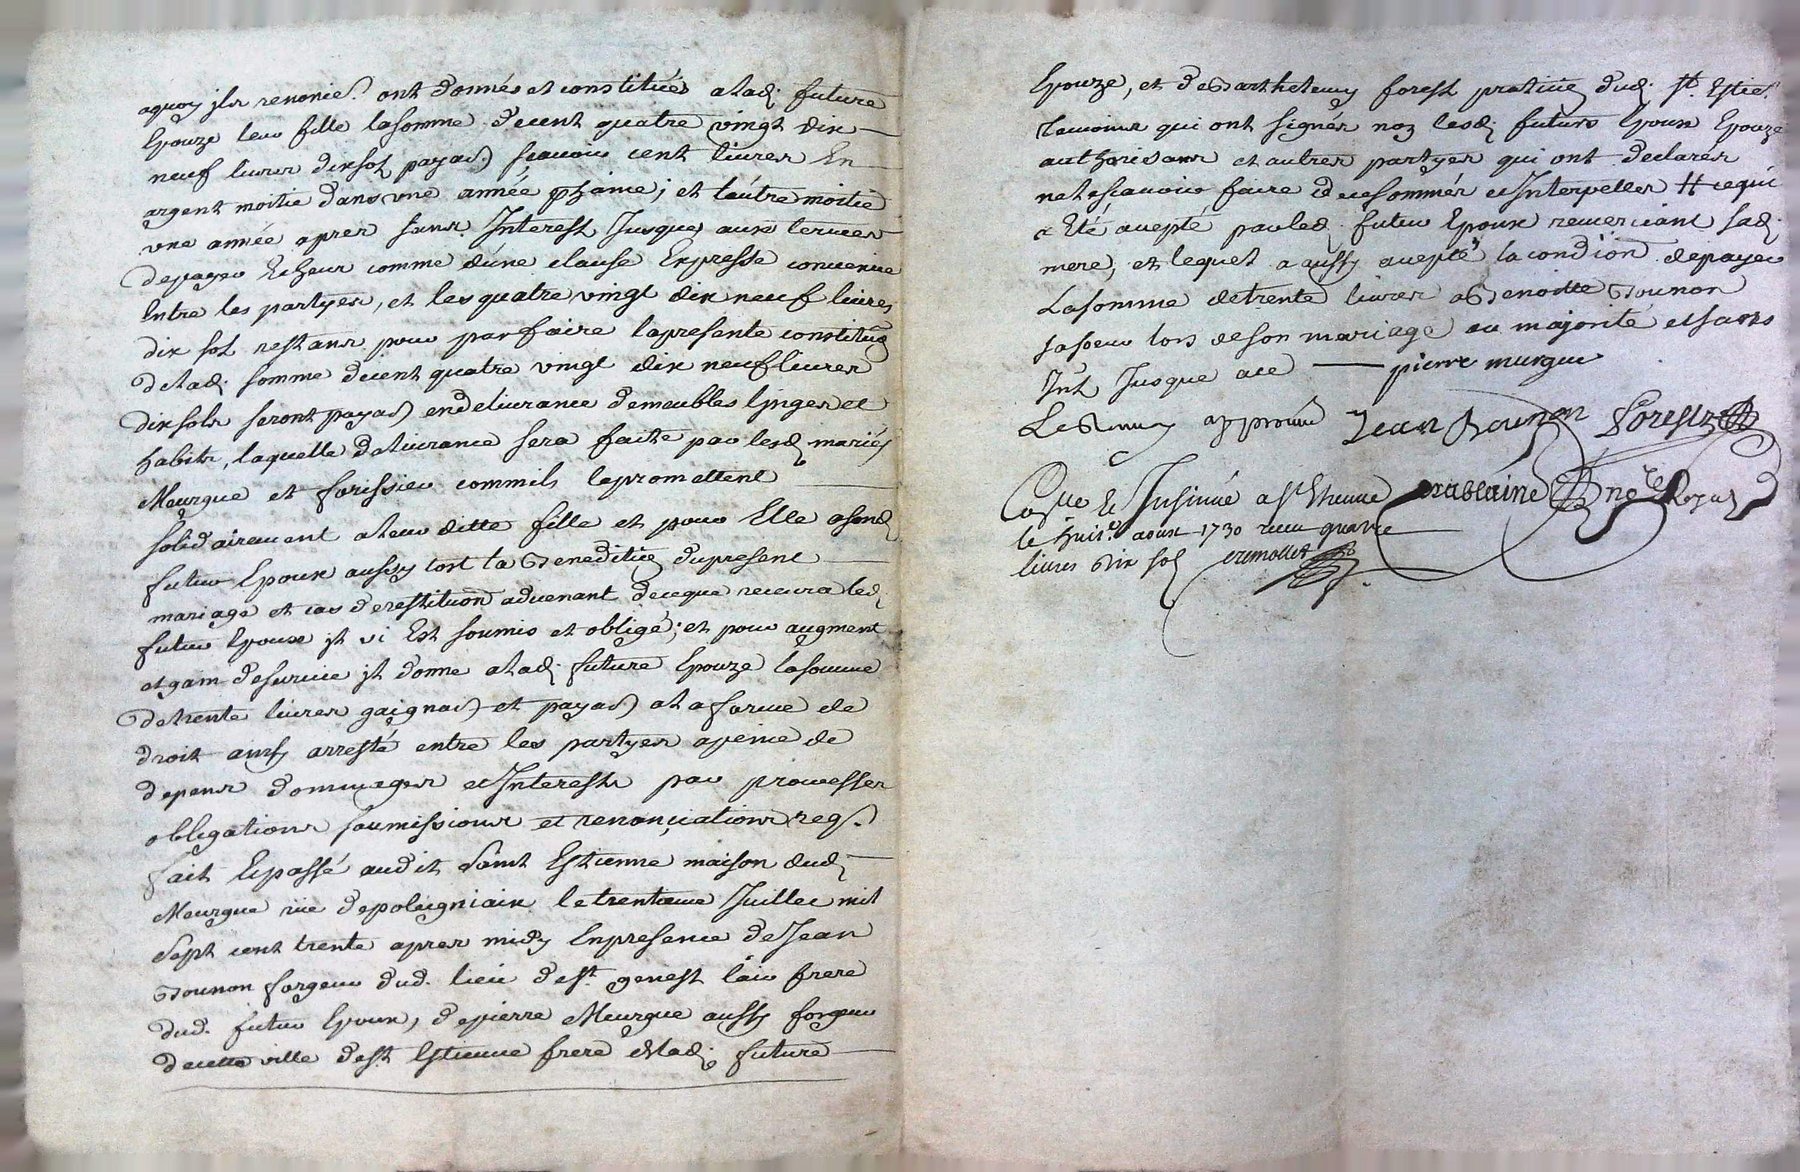 aquoy jls renonce. ont donnés et constitués a lad. future
Epouze leur fille la somme de cent quatre vingt dix
neuf livres dix sol payab) scavoir cent livres En
argent moitié dans une année phaine; et lautre moitié
une année apres sans Interest Jusques aux termes
depayer Echeux comme dune clause Expresse convenue
Entre les partyes, et les quatre vingt dix neuf livres
dix sol restans pour parfaire lapresente constituõn
de lad. somme decent quatre vingt dix neuf livres
dix sols seront payab) en delivrance demeubles linges et
habits, laquelle delivrance sera faite par lesd mariés
Meurgue et forissier commils lepromettent
solidairement a leur ditte fille et pour Elle asond
futur Epoux aussy tost la Benedictiõ dupresent
mariage et cas de restitution advenant dece que recevra led.
futur Epoux jl si Est soumis et obligé; et pour augment
et gain de survie jl donne a lad. future Epouze la somme
detrente livres gaignab) et payab) a la forme de
droit ainsy arresté entre les partyes apeine de
depens dommages et Interests par promesses
obligations soumissions et renonciations req.
fait Et passé audit Saint Estienne maison dud
Meurgue rüe de poleigniaix le trentieme Juillet mil
Sept cent trente apres midy En presence de Jean
Bounon forgeur dud. lieu de st. genest l'air frere
dud. futur Epoux, de pierre Meurgue aussy forgeur
de cette ville de st Estienne frere de lad. future
Epouze, et de Barthelemy forest praticien dud. st. Estie.
temoins qui ont signés non lesd. futurs Epoux Epouze
authorisans et autres partyes qui ont declarés
ne le scavoir faire de ce sommés et Interpellés H cequi
a Eté accepté par led. futur Epoux remerciant sad.
mere, et lequel a aussy accepté la condiõn depayer
La somme detrente livres a Benoitte Bounon
sa soeur lors deson mariage ou majorité et sans
Int. Jusque a ce — pierre murgue
approuvé Jean Bounon Forest
Coñlle & Insinué a St Etienne Drablaine nore Royal
le huit. aoust 1730 receu quatre
livres dix sol